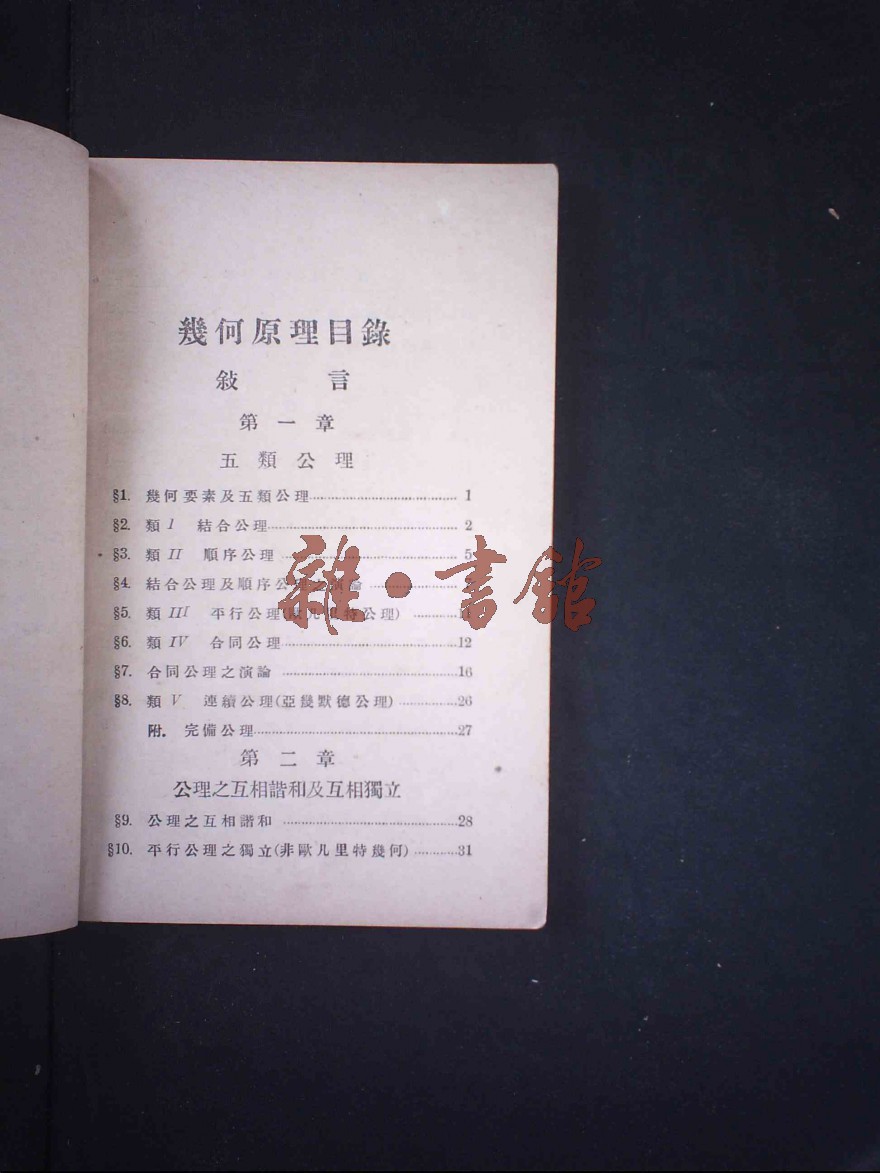 幾何原理目錄
敍言
第一章
五類公理
§1. 幾何要素及五類公理 1
§2. 類 I 結合公理 2
§3. 類 II 順序公理 5
§4. 結合公理及順序公理之演論
§5. 類 III 平行公理(歐几里特公理) 11
§6. 類 IV 合同公理 12
§7. 合同公理之演論 16
§8. 類 V 連續公理(亞幾默德公理) 26
附. 完備公理 27
第二章
公理之互相諧和及互相獨立
§9. 公理之互相諧和 28
§10. 平行公理之獨立(非歐几里特幾何) 31
雜·書館